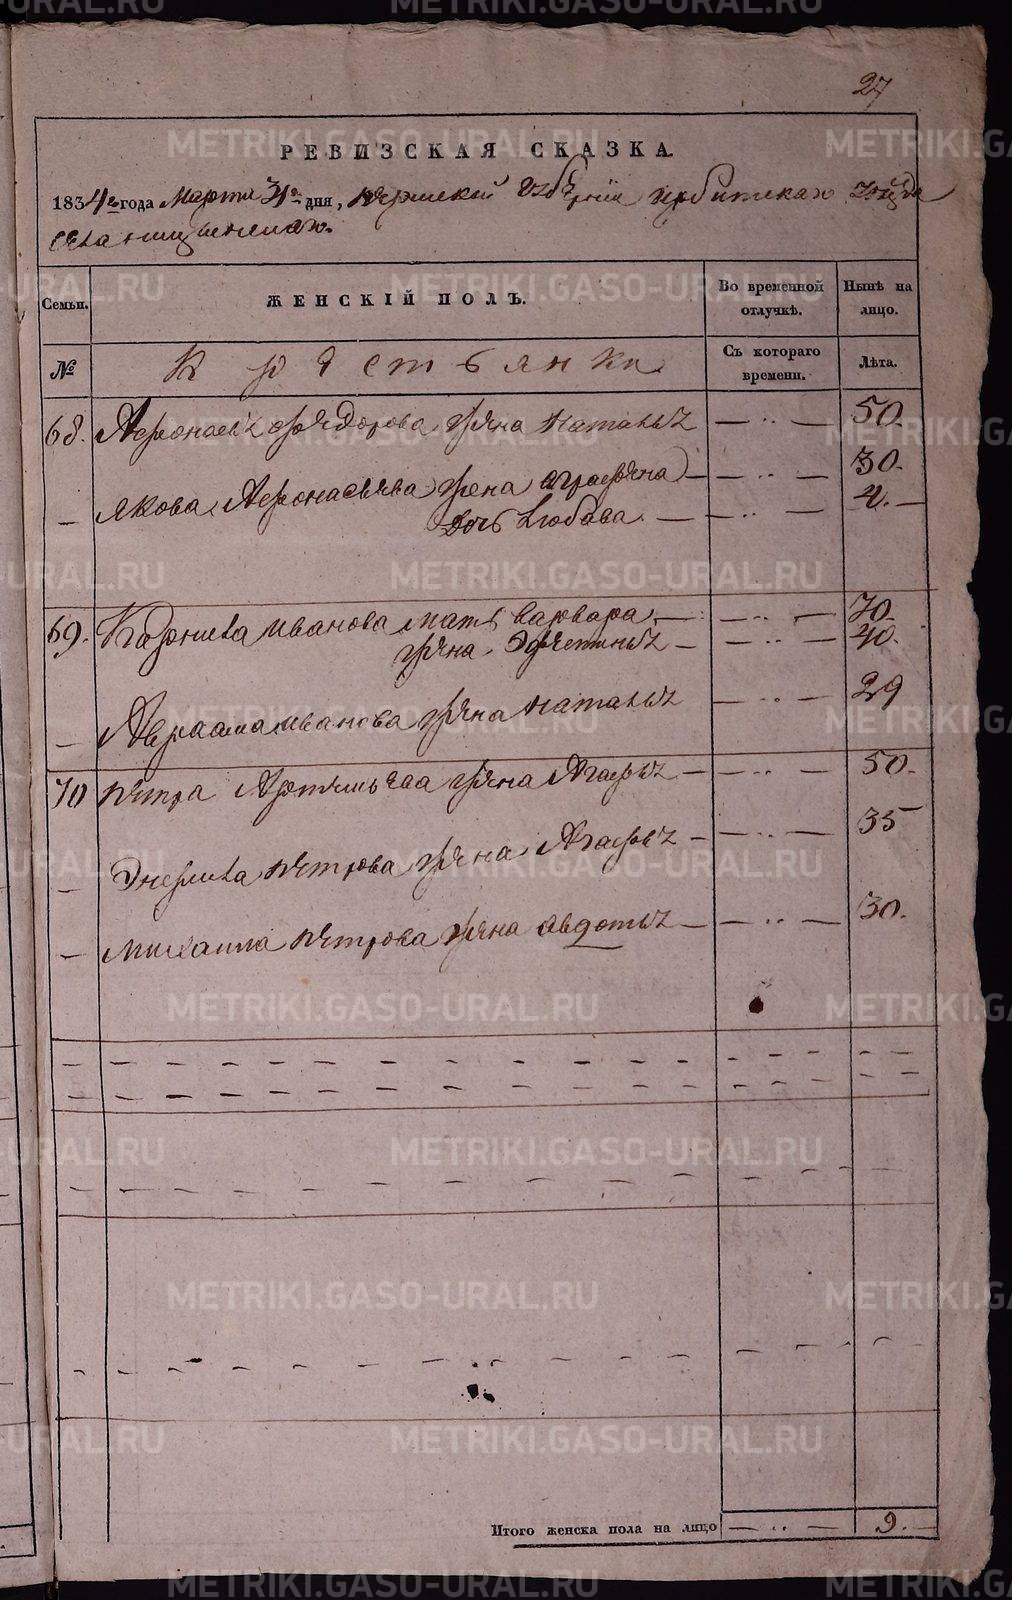 27
РЕВИЗСКАЯ СКАЗКА.
1834го года Марта 31го дня, Пермской Губернии Ирбитскаго уѣзда
Семьи. ЖЕНСКІЙ ПОЛЪ. Во временной отлучкѣ. Нынѣ на лицо.
№ Крестьянки Съ котораго времени. Лѣта.
68. Афонасья Фядорова жена Наталья — ·· — 50.
— Якова Афонасьява жена Аграфяна — — ·· — 30.
Дочь Любава — — ·· — 4. —
69. Гаврила Иванова мать Варвара — — ·· — 70.
жена — — ·· — 40.
— Авраама Иванова жена Наталья — ·· — 29
70 Пятра Артямьява жена Агафья — — ·· — 50.
— Пятрова жена Агафья — — ·· — 35
— Михаила Пятрова жена Авдотья — — ·· — 30.
Итого женска пола на лицо — ·· — 9.
METRIKI.GASO-URAL.RU